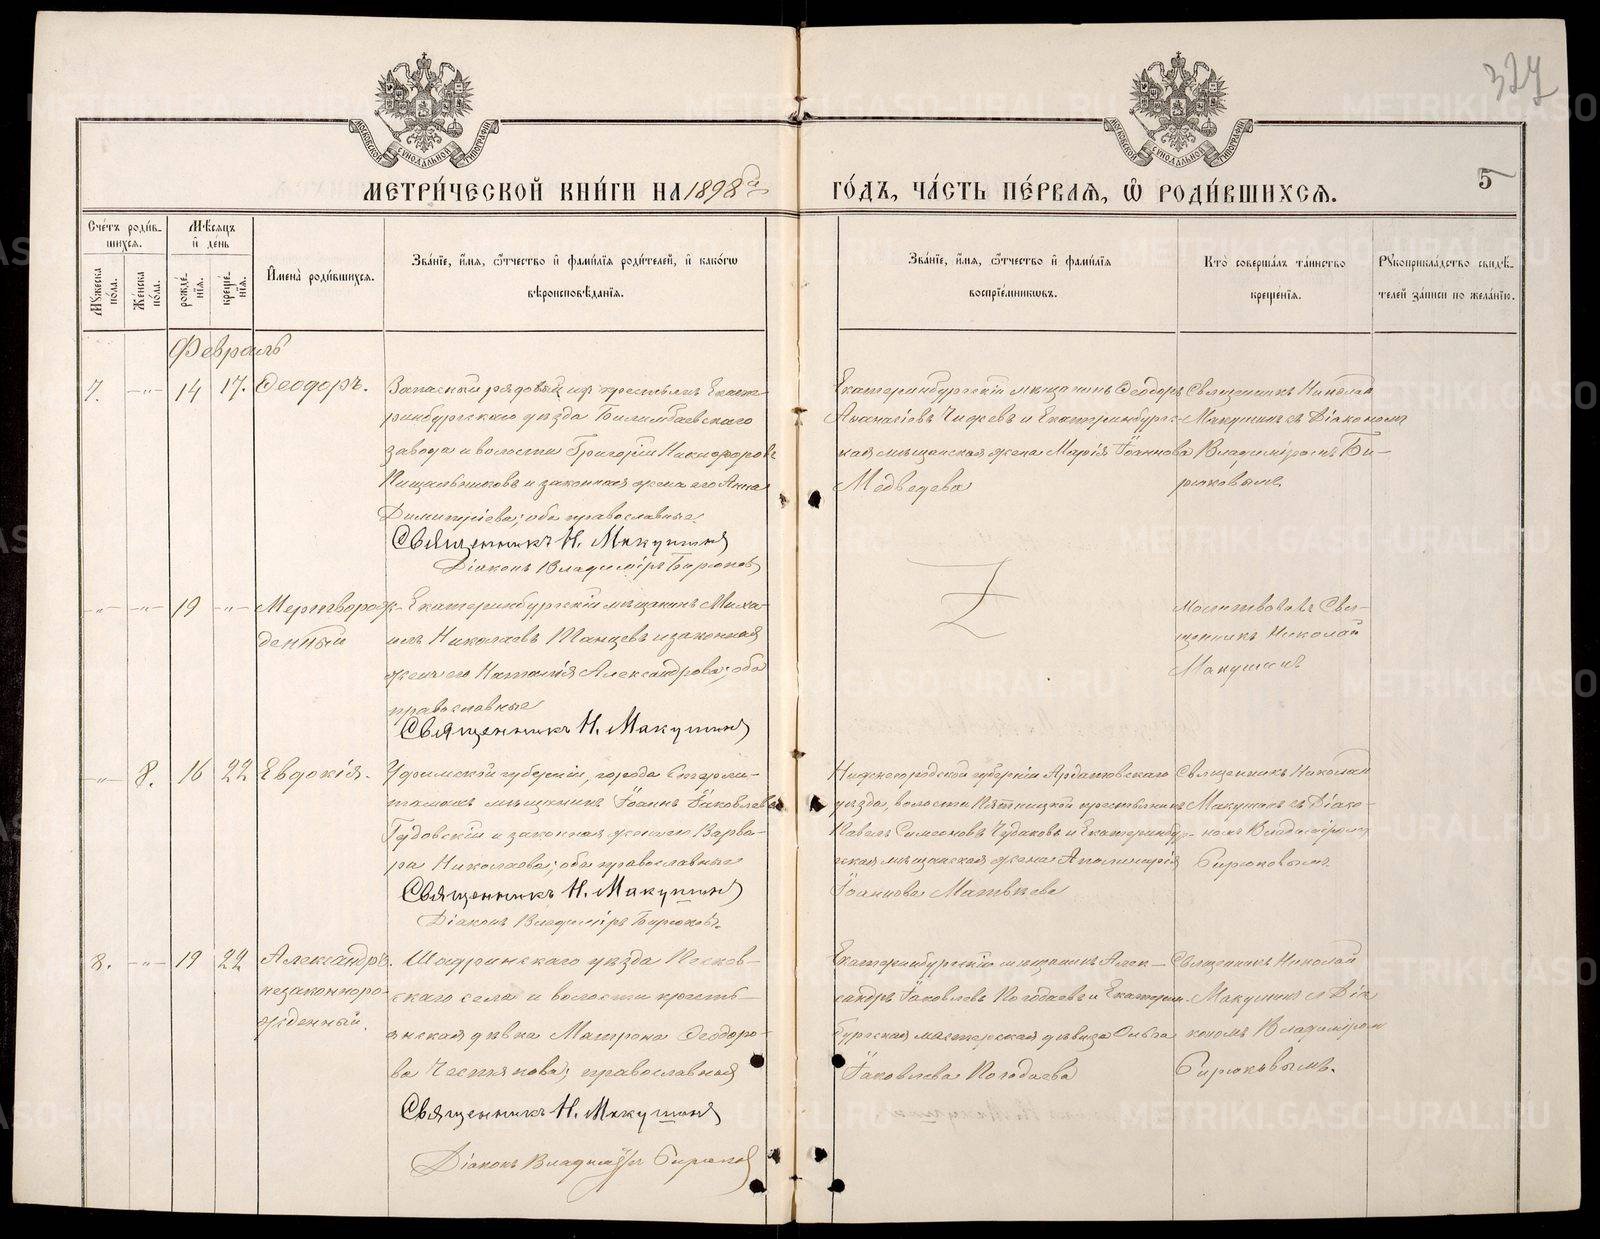 327
МЕТРИ́ЧЕСКОЙ КНИ́ГИ НА 1898й
ГО́ДЪ, ЧА́СТЬ ПЕ́РВАЯ, Ѡ РОДИ́ВШИХСЯ.
5
Сче́тъ роди́в-
шихся.
Му́жеска по́ла.
Же́нска по́ла.
Мѣ́сяцъ
и҆ де́нь
рожде́-
нїя.
креще́-
нїя.
И҆мена̀ роди́вшихся.
Зва́нїе, и҆́мя, ѻ҆́тчество и҆ фами́лїя роди́телей, и҆ како́гѡ
вѣроисповѣ́данїя.
Зва́нїе, и҆́мя, ѻ҆́тчество и҆ фами́лїя
воспрїе́мниковъ.
Кто̀ соверша́лъ та́инство
креще́нїя.
Рꙋкоприкла́дство свидѣ́-
телей за́писи по жела́нїю.
Февраль
7. -"- 14 17. Ѳеодоръ.
Запасный рядовый изъ крестьянъ Екате-
ринбургскаго уѣзда Билимбаевскаго
завода и волости Григорій Никифоровъ
Пищальниковъ и законная жена его Анна
Димитріева; оба православные.
Священникъ Н. Макушинъ
Діаконъ Владиміръ Бирюковъ
Екатеринбургскій мѣщанинъ Ѳеодоръ
Аѳанасіевъ Чижевъ и Екатеринбург-
ская мѣщанская жена Марія Іоаннова
Медведева
Священникъ Николай
Макушинъ съ Діакономъ
Владиміромъ Би-
рюковымъ.
-"- -"- 19 -"- Мертворож-
денный
Екатеринбургскій мѣщанинъ Миха-
илъ Николаевъ Танцевъ и законная
жена его Наталія Александрова; оба
православные
Священникъ Н. Макушинъ
Молитвовалъ Свя-
щенникъ Николай
Макушинъ
-"- 8. 16 22 Евдокія.
Уфимской губерніи, города Стерли-
тамакъ мѣщанинъ Іоаннъ Іаковлевъ
Гудовскій и законная жена его Варва-
ра Николаева; оба православные
Священникъ Н. Макушинъ
Діаконъ Владиміръ Бирюковъ.
Нижегородской губерніи Ардатовскаго
уѣзда, волости Пятницкой крестьянинъ
Павелъ Симеоновъ Чудаковъ и Екатеринбур-
гская мѣщанская жена Аполинарія
Іоаннова Матвѣева
Священникъ Николай
Макушинъ съ Діако-
номъ Владиміромъ
Бирюковымъ.
8. -"- 19 22 Александръ.
незаконноро-
жденный.
Шадринскаго уѣзда Песков-
скаго села и волости кресть-
янская дѣвка Матрона Ѳеодоро-
ва Честякова; православная
Священникъ Н. Макушинъ
Діаконъ Владиміръ Бирюковъ
Екатеринбургскій мѣщанинъ Алек-
сандръ Іаковлевъ Погодаевъ и Екатерин-
бургская мастерская дѣвица Ольга
Іаковлева Погодаева
Священникъ Николай
Макушинъ съ Діа-
кономъ Владиміромъ
Бирюковымъ.